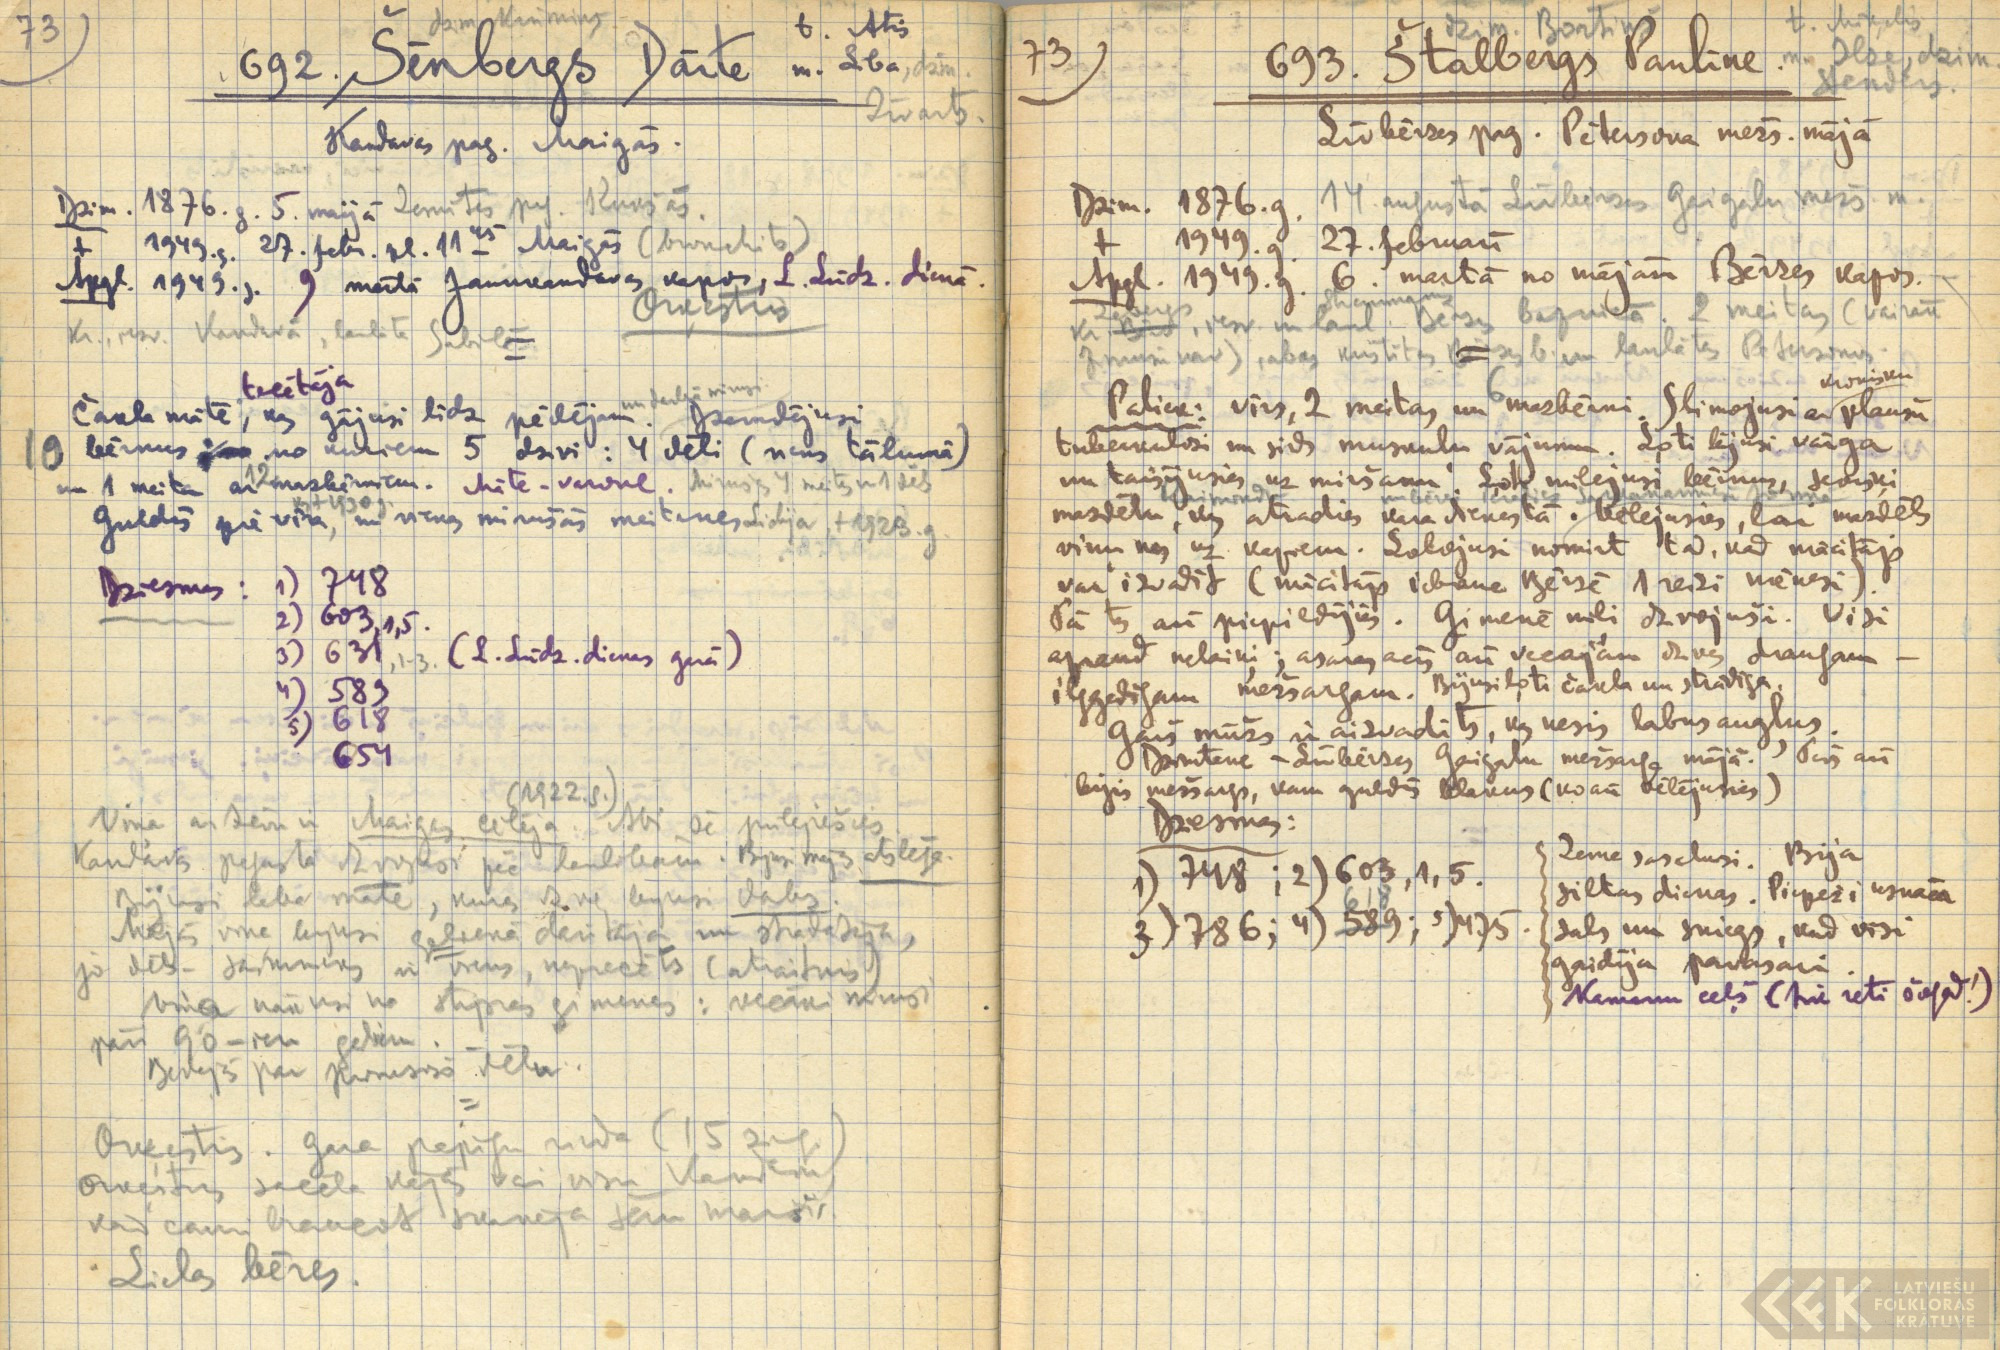 73)
dzim. Krūmiņš
692. Šēnbergs Dārte
t. Atis
m. Lība, dzim.
Zvārts.
Kandavas pag. Maigās.
Dzim. 1876. g. 5. maijā Zemītes pag.
† 1949. g. 27. febr. pl. 11 45 Maigās (bronchīts)
Apgl. 1949. g. 9 martā Jaunkandavas kapos, L. Lūdz. dienā.
Orķestris
Kr., iesv. Kandavā, laulāta Sabilē
=
tecētāja
Čakla māte, kas gājusi līdz pēdējam. Dzemdējusi
10 bērnus no kuriem 5 dzīvi: 4 dēli (viens tālumā)
un 1 meita ar 12 mazbērniem. Māte-varone. Mirušas 4 meitas un 1 dēls
† 1930 g.
Guldīs pie vīra, un vienas mirušās meitenes Lidija, † 1923. g.
Dziesmas: 1) 748
2) 603, 1,5.
3) 631, 1-3. (L. Lūdz. dienas garā)
4) 589
5) 618
654
(1922. g.)
Viņa ar vīru ir Maigas cēlēja. Abi pūlējušies.
Kandavas pagastā dzīvojusi pēc laulībām. Bijusi mājas atslēga.
Bijusi laba māte, kuras dzīve bijusi darbs.
Mājās viņa bijusi galvenā darītāja un strādātāja,
jo dēls - saimnieks ir viens, neprecēts (atraitnis)
Viņa nākusi no stipras ģimenes: vecāki miruši
pāri 90-iem gadiem.
Bēdājās par promesošo dēlu.
=
Orķestris. Gara pajūgu rinda (15 zirg.)
Orķestris sacēla kājās vai visu Kandavu
kad cauri braucot skanēja sēru maršs.
Lielas bēres.
73)
dzim. Bortiņš
693. Štalbergs Pauline.
t. Miķelis
m. Ilze, dzim.
Zenders.
Līvbērzes pag. Pētersona mežs. mājā
Dzim. 1876. g. 14. augustā Līvbērzes Gaigalu mežs. m.
† 1949. g. 27. februārī
Apgl. 1949. g. 6. martā no mājām Bērzes kapos.
Kr. , iesv. un laul. Bērzes baznīcā. 2 meitas (vairāk
=
Paliek: vīrs, 2 meitas un 6 mazbērni. Slimojusi ar kronisku plaušu
tuberkulosi un sirds muskuļu vājumu. Ļoti bijusi vārga
un taisījusies uz miršanu. Ļoti mīlējusi bērnus, sevišķi
mazdēlu, kas atradies kara dienestā. Vēlējusies, lai mazdēls
viņu nes uz kapiem. Lolojusi nomirt tad, kad mācītājs
var izvadīt (mācītājs iebrauc Bērzē 1 reizi mēnesī).
Tā tas arī piepildījies. Ģimenē mīļi dzīvojuši. Visi
apraud nelaiķi; asaras acīs arī vecajam dzīves draugam -
ilggadīgam mežsargam. Bijusi ļoti čakla un strādīga.
Gaiš mūžs ir aizvadīts, kas nesis labus augļus.
Dzimtene - Līvbērzes Gaigalu mežsarga mājā. Tēvs arī
bijis mežsargs, kam guldīs blakus (ko arī vēlējusies)
Dziesmas:
1) 748; 2) 603, 1, 5.
618
3) 786; 4) 589; 5) 475.
Zeme sasalusi. Bija
siltas dienas. Piepeži uznāca
sals un sniegs, kad visi
gaidīja pavasari.
Kamanu ceļš (tik reti šogad!)
LATVIEŠU
FOLKLORAS
KRĀTUVE